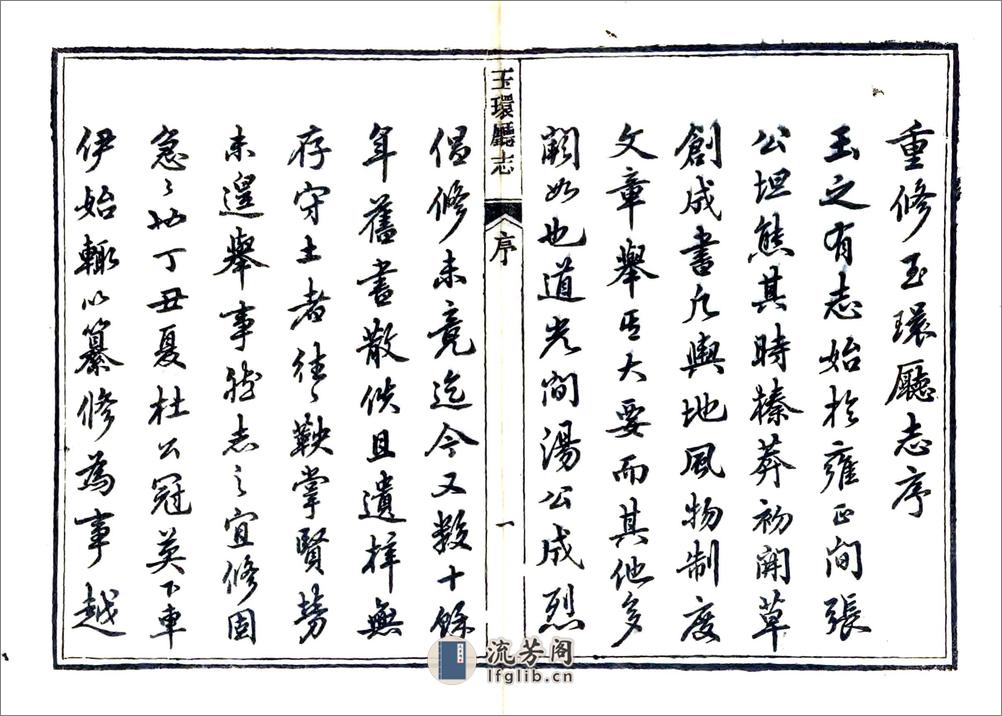 重修玉環廳志序
玉之有志始於雍正間張
公坦熊其時榛莽初開草
創成書凡輿地風物制度
文章舉其大要而其他多
闕如也道光間湯公成烈
玉環廳志
序
一
倡修未竟迄今又數十餘
年舊書散佚且遺梓無
存守土者往〻鞅掌賢勞
未遑舉事然志之宜修固
急〻也丁丑夏杜公冠英下車
伊始輒以纂修為事越
流芳阁
lfglib.cn